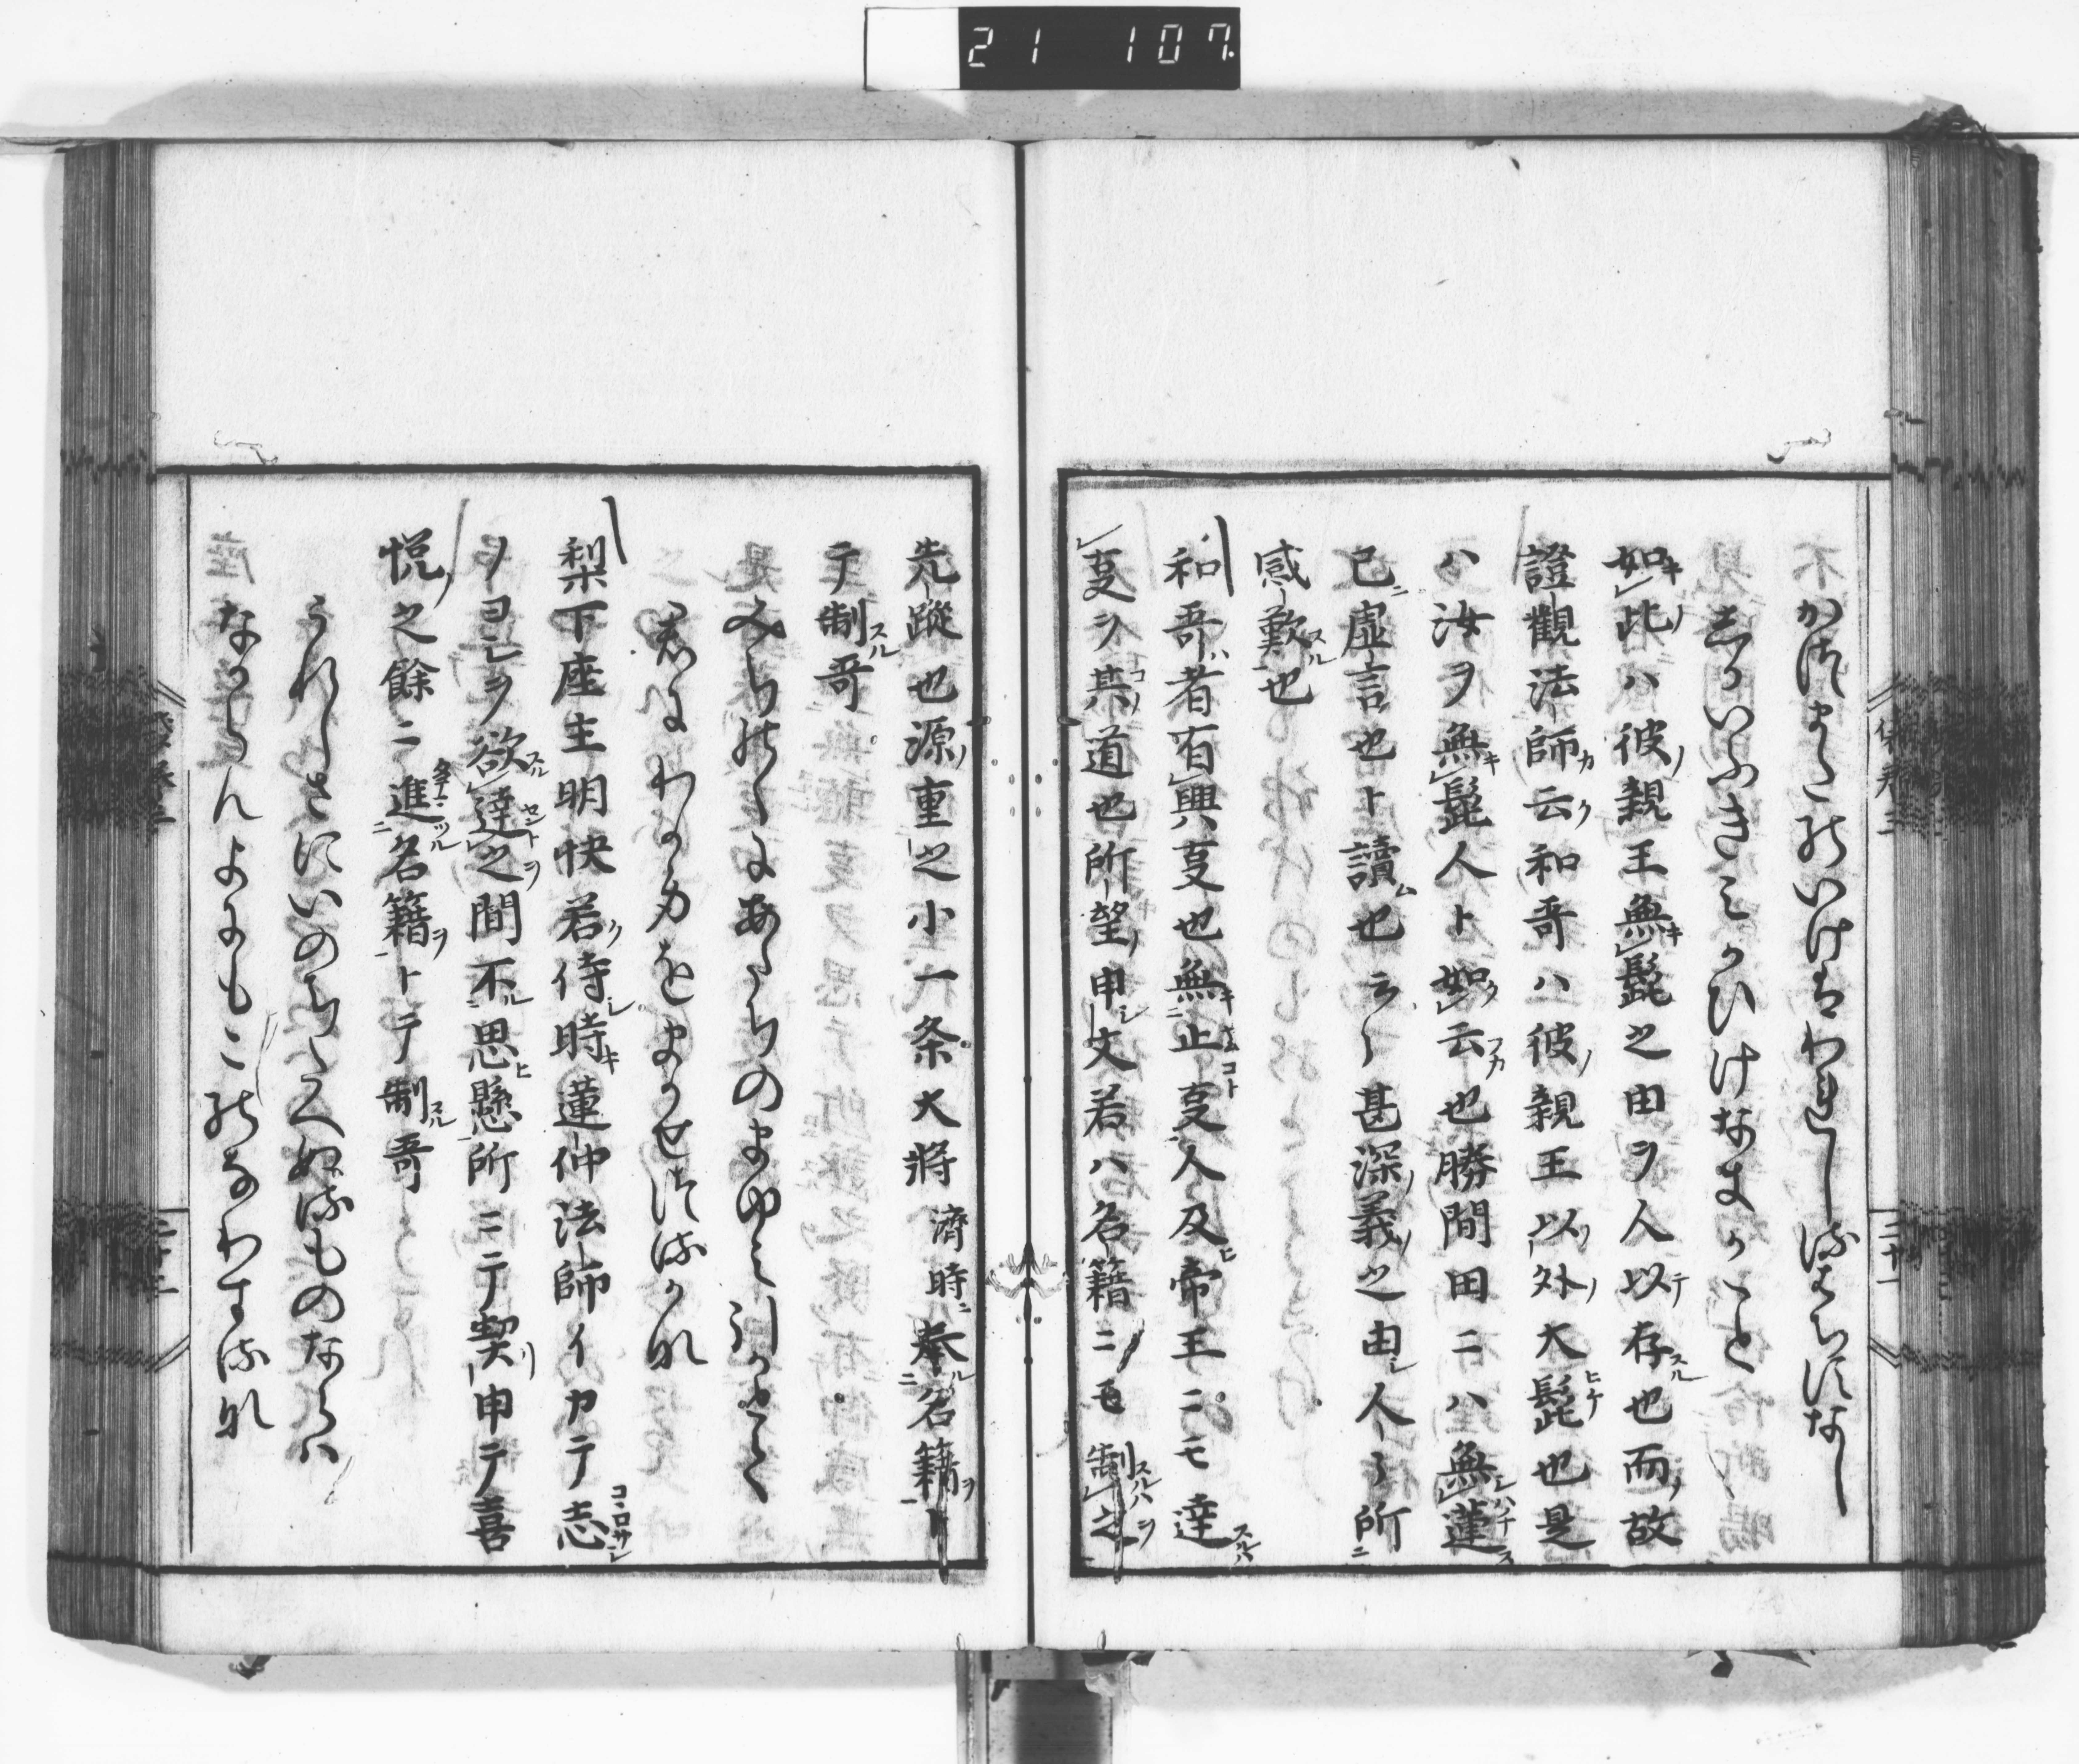 21 107
かつまたのいけはわれしるはちすなし
しかいふきみかひけなきかこと
如此ハ彼親王無髭之由ヲ人以存也而故
證觀法師云和哥ハ彼親王以外大髭也是
ハ汝ヲ無髭人ト如云也勝間田ニハ無蓮
己虚言也ト讀也云々甚深義之由人々所
感歎也
和哥者有興叓也無止叓人及帝王ニモ達
叓ヲ其道也所望申文若ハ名籍ニモ制之
先蹤也源重之小一条大將濟時奉名籍ト
テ制哥
みちのくにあたちのまゆみ引かとて
君にわか身をまかせつるかな
梨下座主明快若侍時蓮仲法師イカテ志
ノヨシヲ欲達之間不思懸所ニテ契申テ喜
悦之餘ニ進名籍トテ制哥
うれしさにいのちたへぬるものならは
なからんよにもこのなわするな